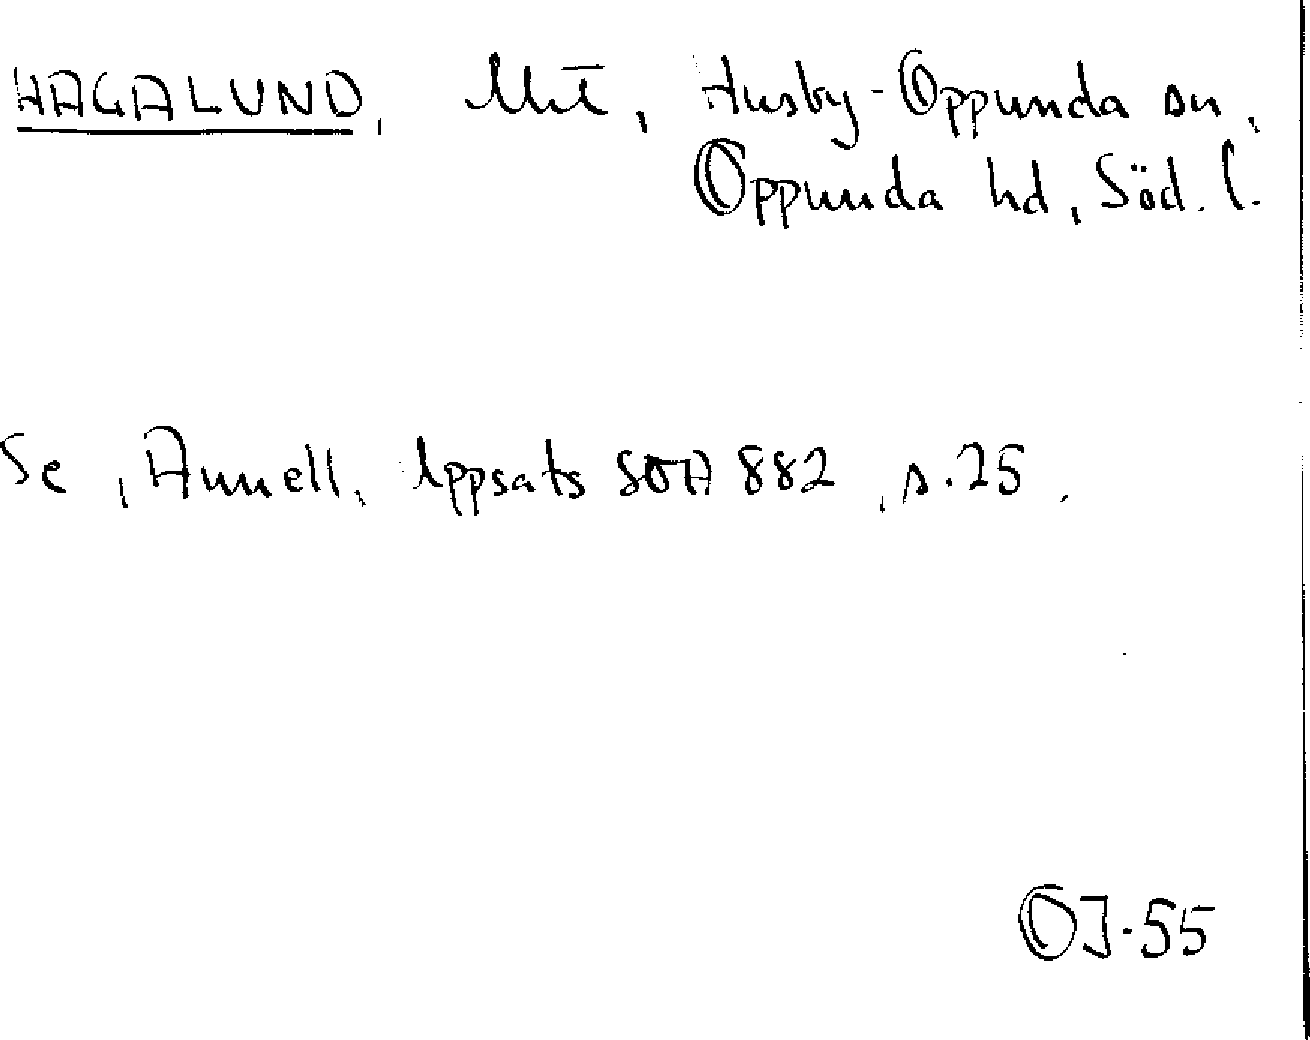 HAGALUND, Husby-Oppunda sn,
Oppunda hd, Söd. l.
Se, Annell, Uppsats SOA 882, s. 25.
OJ-55